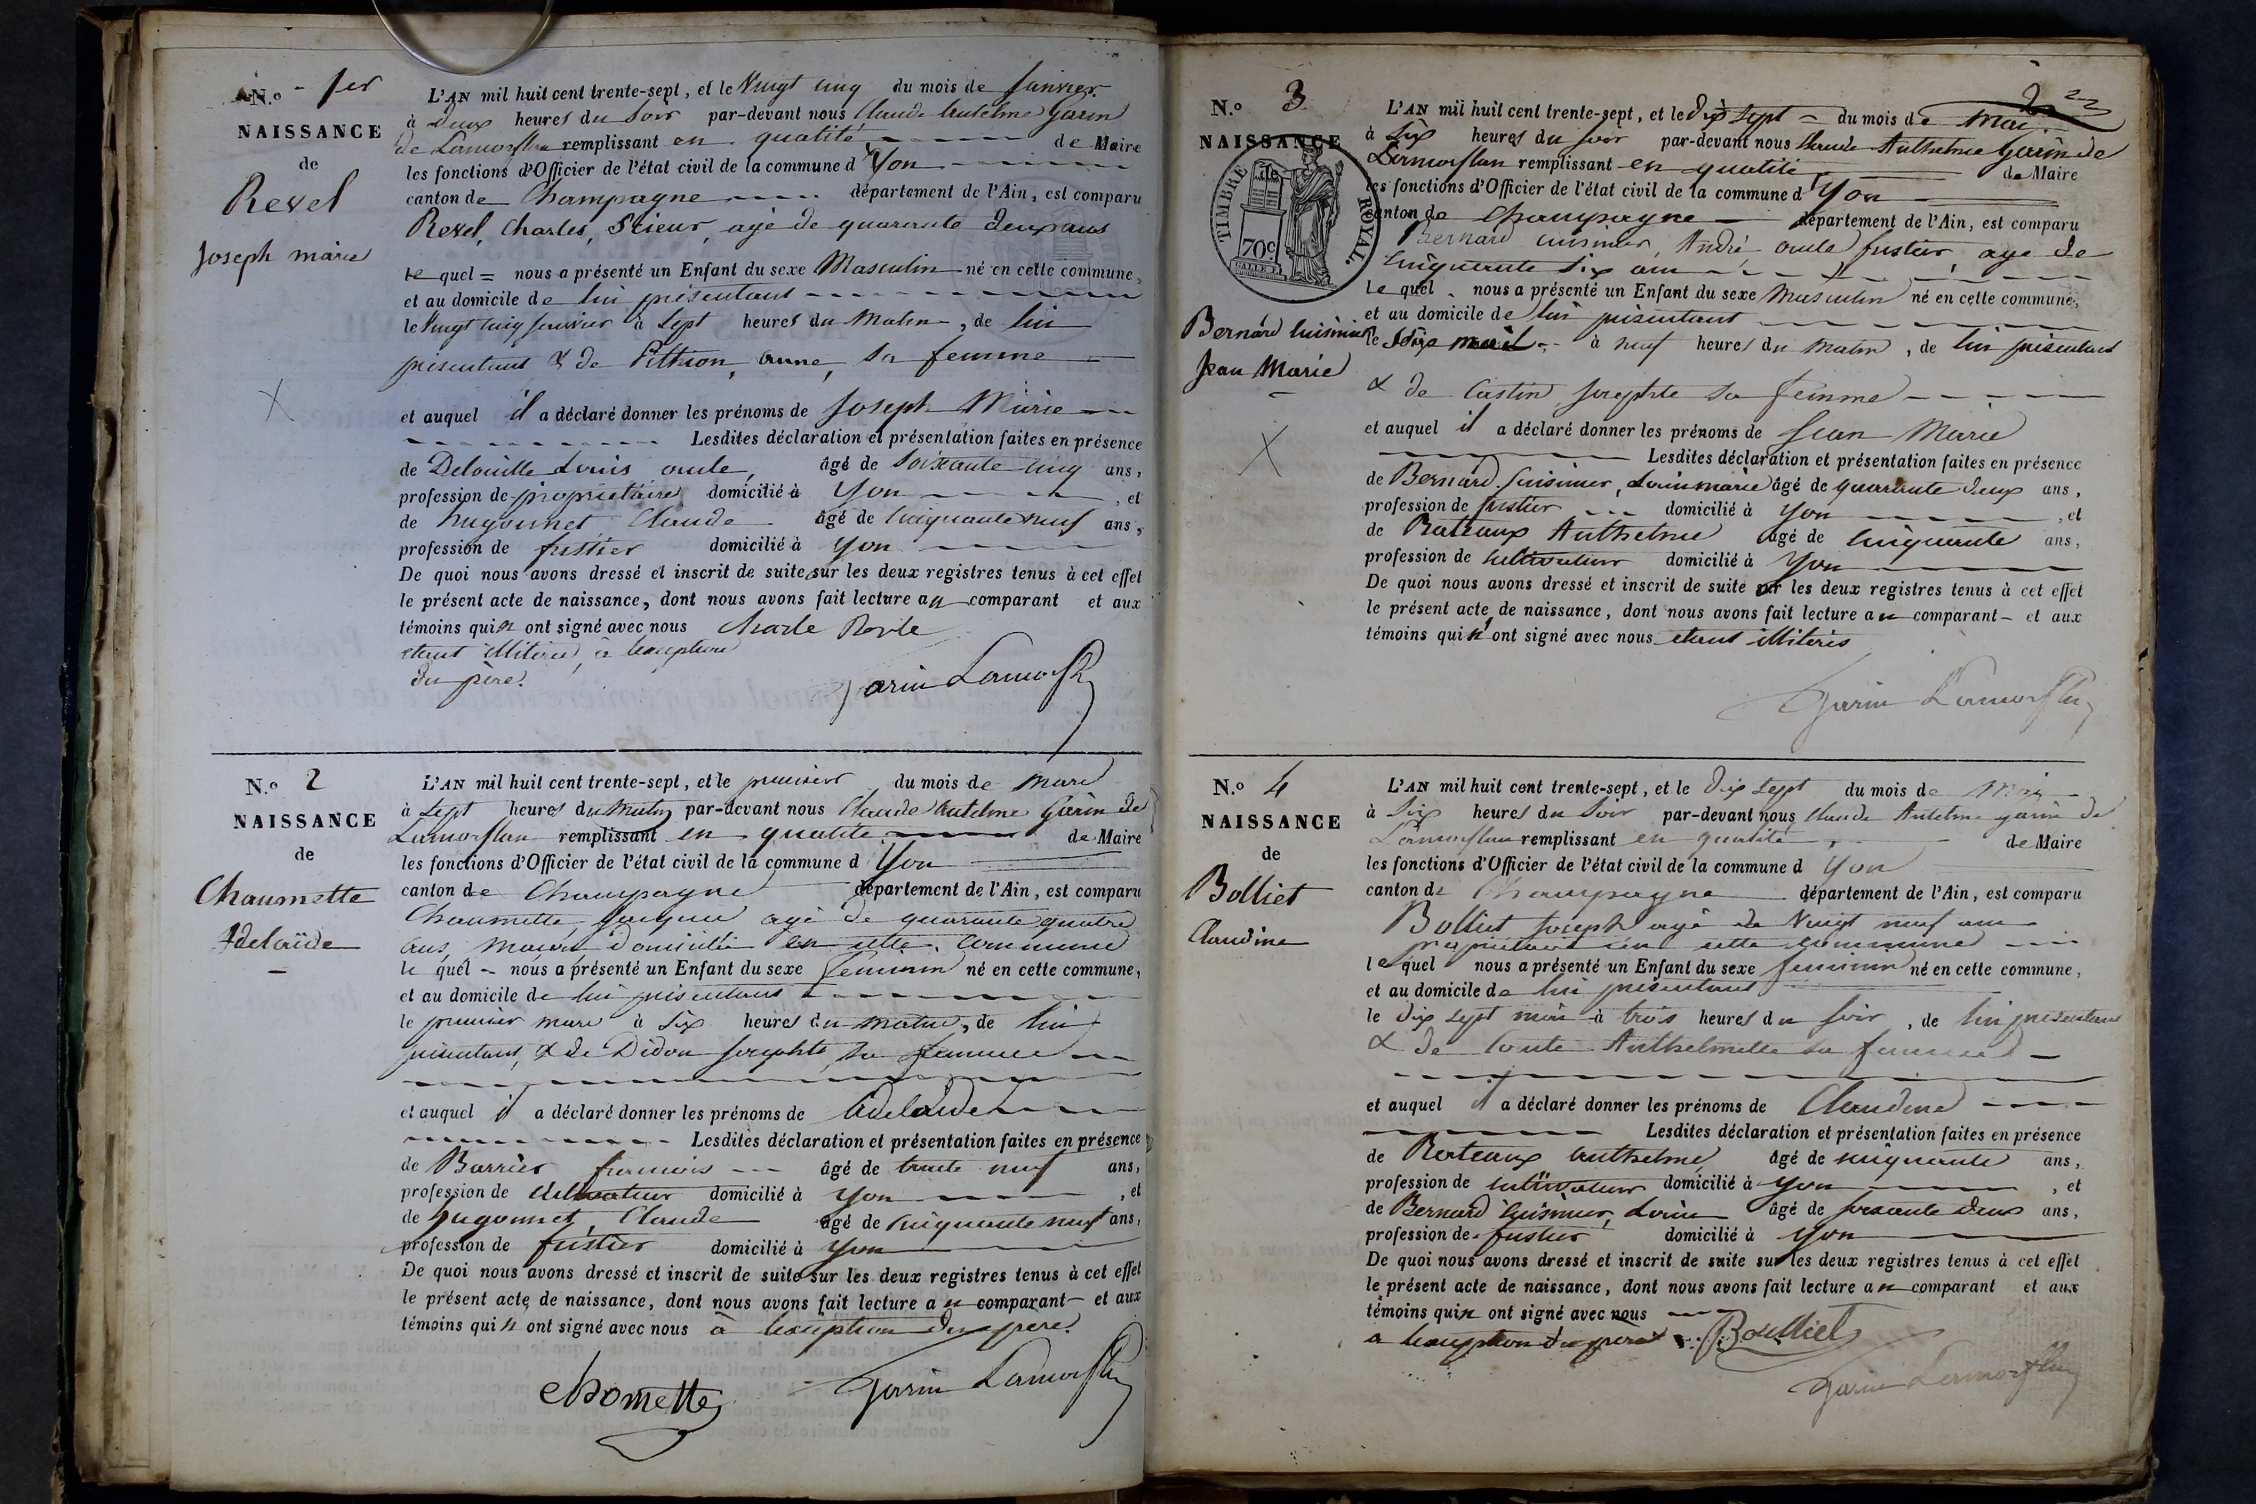 N.o 1er
NAISSANCE
de
Revel
Joseph marie
L'AN mil huit cent trente-sept, et le Vingt cinq du mois de Janvier
à deux heures du Soir par-devant nous Claude Antelme Garin
de Lamorflan remplissant en qualité de Maire
les fonctions d'Officier de l'état civil de la commune d'Yon
canton de Champagne département de l'Ain, est comparu
Revel, Charles, Scieur, agé de quarante deux ans
le quel = nous a présenté un Enfant du sexe Masculin né en cette commune,
et au domicile de lui présentant
le Vingt cinq janvier à Sept heures du Matin, de lui
présentant & de Pithion, anne, sa femme
et auquel il a déclaré donner les prénoms de Joseph Marie
Lesdites déclaration et présentation faites en présence
de Louis oncle, âgé de Soixante cinq ans,
profession de propriétaire domicilié à Yon, et
de hugonnet Claude âgé de cinquante neuf ans,
profession de fustier domicilié à Yon
De quoi nous avons dressé et inscrit de suite sur les deux registres tenus à cet effet
le présent acte de naissance, dont nous avons fait lecture au comparant et aux
témoins qui n'ont signé avec nous Charle
étant a lexception
du père.
Garin Lamorflan
N.o 2
NAISSANCE
de
Chaumette
Adelaïde
L'AN mil huit cent trente-sept, et le premier du mois de Mars
à Sept heures du Matin par-devant nous Claude Antelme Garin de
Lamorflan remplissant en qualité de Maire
les fonctions d'Officier de l'état civil de la commune d'Yon
canton de Champagne département de l'Ain, est comparu
Chaumette, Jacques agé de quarante quatre
ans, maçon domicilié en cette commune
le quel = nous a présenté un Enfant du sexe feminin né en cette commune,
et au domicile de lui présentant
le premier mars à Six heures du matin, de lui
présentant, & de Didon Josephte, sa femme
et auquel il a déclaré donner les prénoms de Adelaide
Lesdites déclaration et présentation faites en présence
de Barrier francois âgé de trente neuf ans,
profession de Cultivateur domicilié à Yon, et
de hugonnet, Claude âgé de cinquante neuf ans,
profession de fustier domicilié à Yon
De quoi nous avons dressé et inscrit de suite sur les deux registres tenus à cet effet
le présent acte de naissance, dont nous avons fait lecture au comparant et aux
témoins qui n'ont signé avec nous à lexception du père.
chomette
Garin Lamorflan
2
N.o 3
NAISSANCE
de
TIMBRE ROYAL.
70c
Bernard cuisinier
Jean Marie
L'AN mil huit cent trente-sept, et le dix Sept du mois de Mai
à Six heures du Soir par-devant nous Claude Anthelme Garin de
Lamorflan remplissant en qualité de Maire
les fonctions d'Officier de l'état civil de la commune d'Yon
canton de Champagne département de l'Ain, est comparu
Bernard cuisinier, André oncle, fustier, age de
cinquante Six ans
le quel nous a présenté un Enfant du sexe Masculin né en cette commune,
et au domicile de lui présentant
le à neuf heures du Matin, de lui présentant
& de Castin, Josephte sa femme
et auquel il a déclaré donner les prénoms de Jean Marie
Lesdites déclaration et présentation faites en présence
de Bernard Cuisinier, Louis marie âgé de quarante deux ans,
profession de fustier domicilié à Yon, et
de Rateaux Anthelme âgé de cinquante ans,
profession de Cultivateur domicilié à Yon
De quoi nous avons dressé et inscrit de suite sur les deux registres tenus à cet effet
le présent acte de naissance, dont nous avons fait lecture au comparant et aux
témoins qui n'ont signé avec nous etant illiterés
Garin Lamorflan
N.o 4
NAISSANCE
de
Bolliet
Claudine
L'AN mil huit cent trente-sept, et le Dix Sept du mois de Mai
à Six heures du Soir par-devant nous Claude Antelme garin de
Lamorflan remplissant en qualité de Maire
les fonctions d'Officier de l'état civil de la commune d Yon
canton de Champagne département de l'Ain, est comparu
Bolliet Joseph agé de Vingt neuf ans
propriétaire en cette commune
le quel nous a présenté un Enfant du sexe feminin né en cette commune,
et au domicile de lui présentant
le Dix Sept mai à trois heures du Soir, de lui présentant
& de Conte Anthelmette sa femme
et auquel il a déclaré donner les prénoms de Claudine
Lesdites déclaration et présentation faites en présence
de Rateaux Anthelme âgé de cinquante ans,
profession de Cultivateur domicilié à Yon, et
de Bernard Cuisinier, Louis âgé de deux ans,
profession de fustier domicilié à Yon
De quoi nous avons dressé et inscrit de suite sur les deux registres tenus à cet effet
le présent acte de naissance, dont nous avons fait lecture au comparant et aux
témoins qui n'ont signé avec nous
a lexception du père Boulliet
Garin Lamorflan